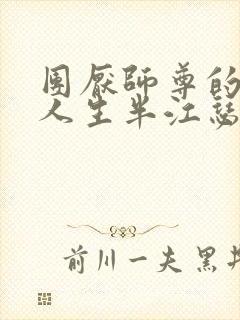 團厭師尊的
人生半江瑟
前川一夫黑